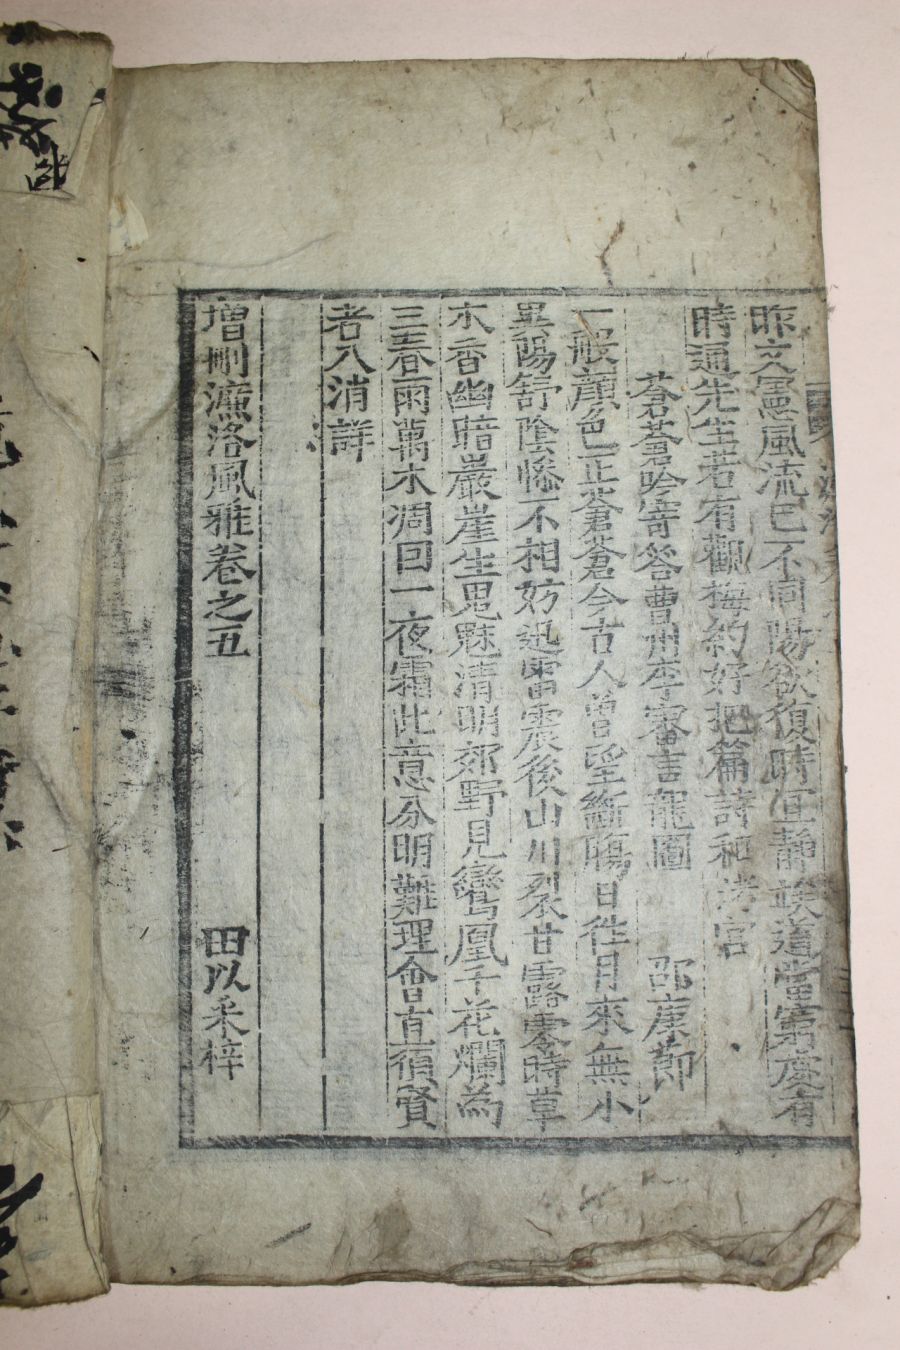 昨文憲風流已不同陽欲復時宜靜
道當窮處有
時通先生若有觀梅約好把篇詩和
宮
蒼蒼吟寄答曹州李審言龍圖 邵康節
一般顔色正蒼蒼今古人曾望斷膓日徃月來無小
異陽舒陰慘不相妨迅雷震後山川裂甘露零時草
木香幽暗巖崖生鬼魅清明郊野見鸞凰千花爛為
三春雨萬木凋因一夜霜此意分明難理會直須賢
者入消詳
增刪濂洛風雅卷之五 田以采梓